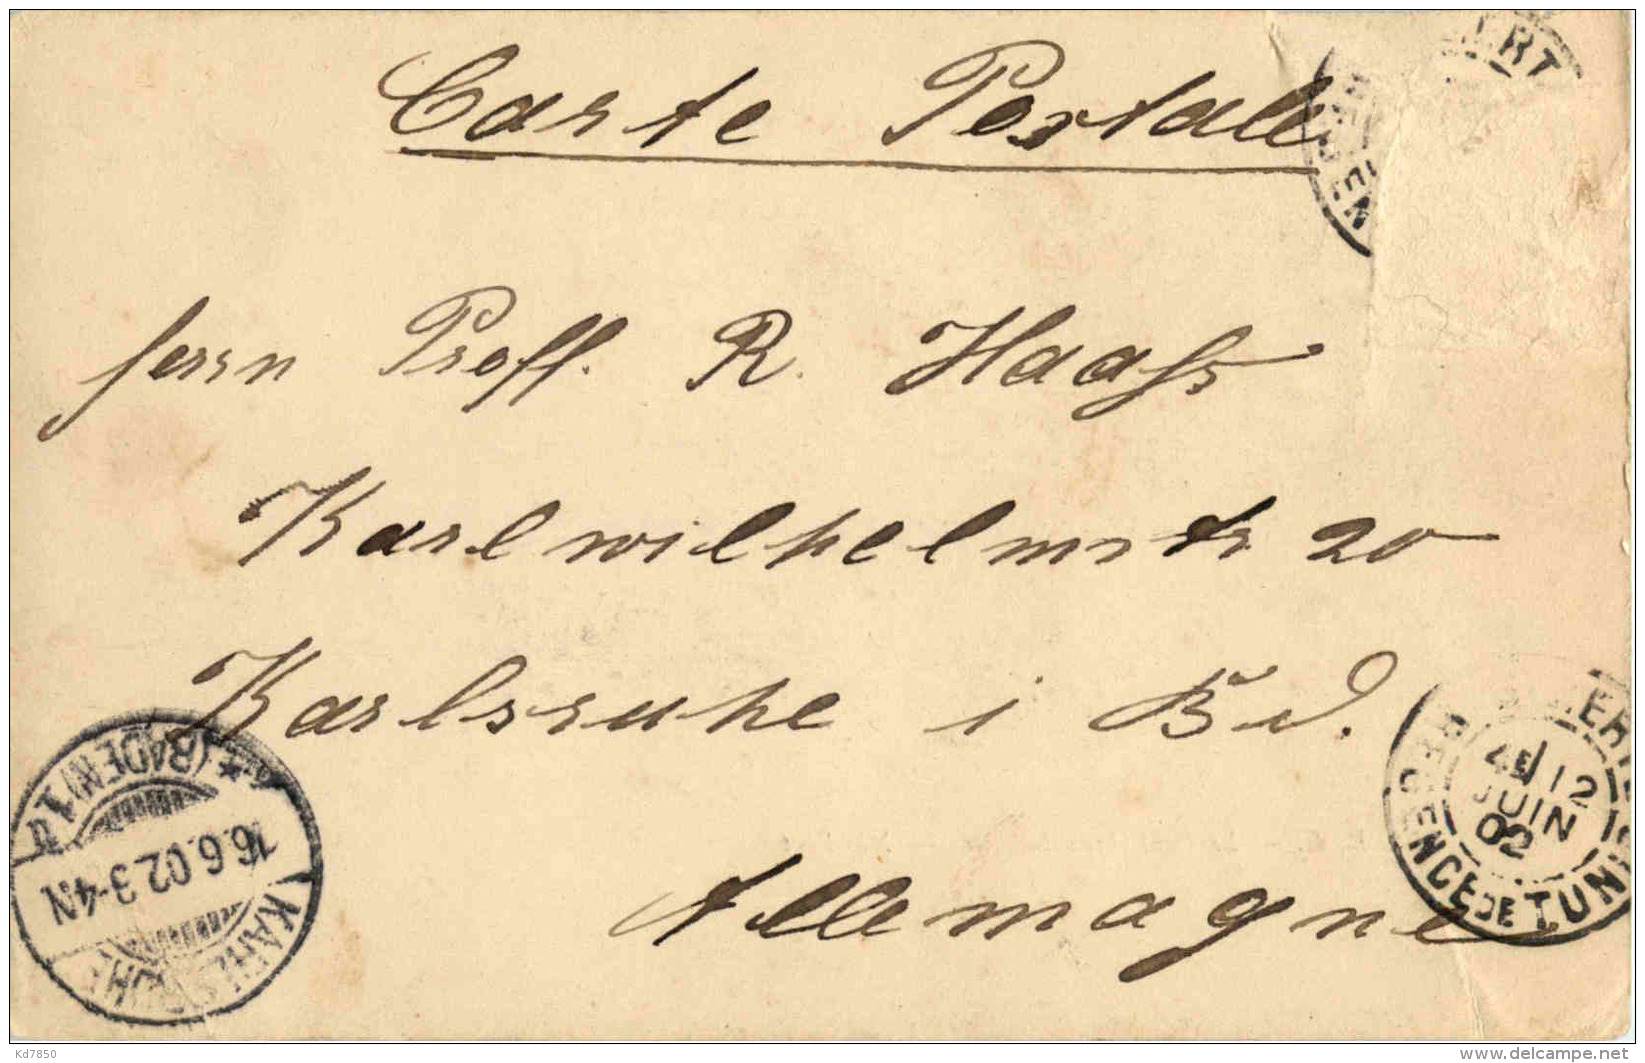 Carte Postale
Herrn Proff. R. Haafs
Karlwilhelmstr 20
Karlsruhe i Bd.
Allemagne
KARLSRUHE
* (BADEN) 1
16.6.02.3-4N
REGENCE DE TUNIS
4E/12
JUIN
02
Kd7850
www.delcampe.net